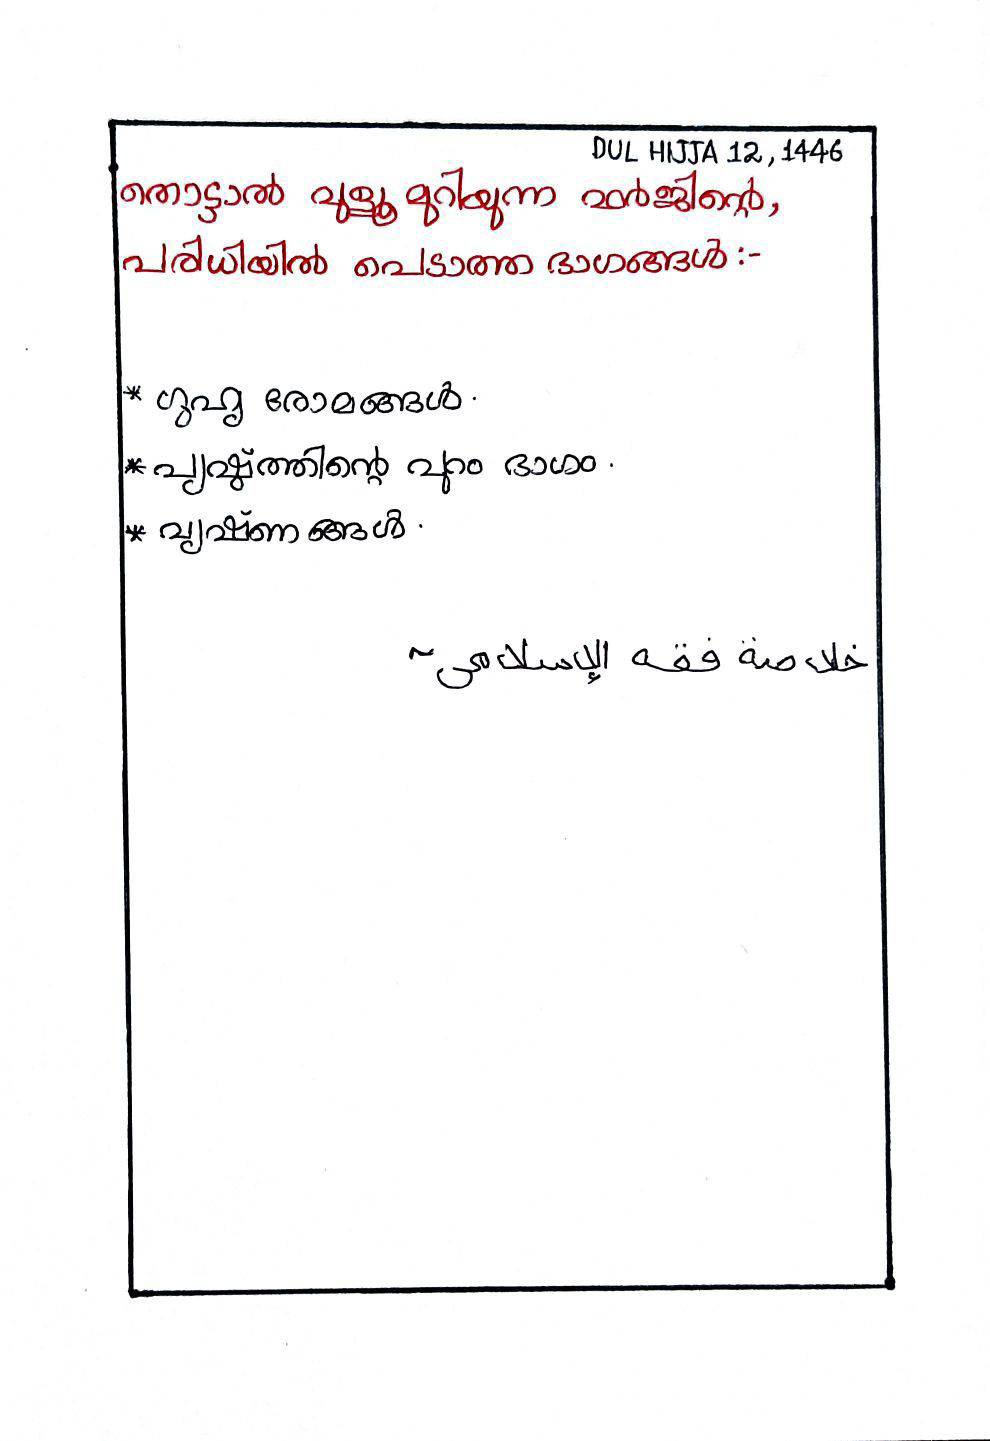 DUL HIJJA 12, 1446
തൊട്ടാൽ വുളൂ മുറിയുന്ന ഫർജിന്റെ,
പരിധിയിൽ പെടാത്ത ഭാഗങ്ങൾ :-
* ഗുഹ്യ രോമങ്ങൾ.
* പൃഷ്ഠത്തിന്റെ പുറം ഭാഗം.
* വൃഷ്ണങ്ങൾ.
خلاصة فقه الإسلامي ~